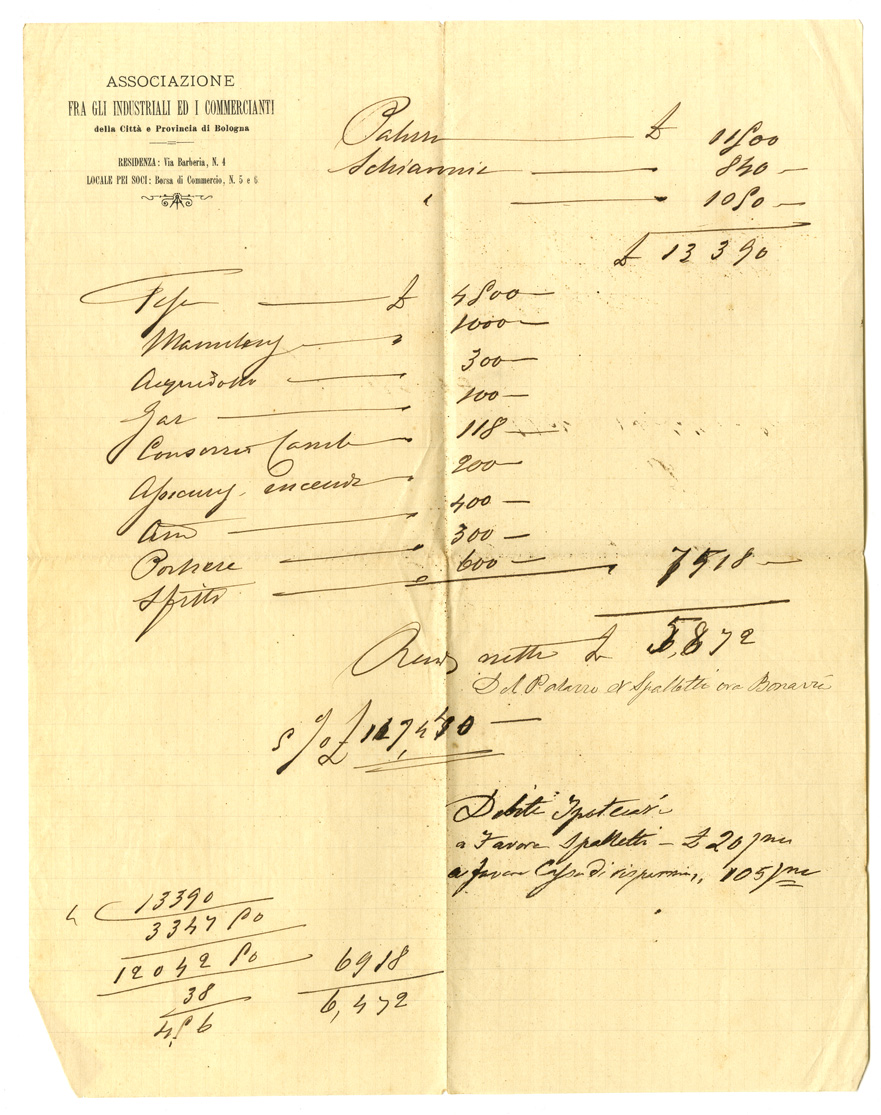 ASSOCIAZIONE
FRA GLI INDUSTRIALI ED I COMMERCIANTI
della Città e Provincia di Bologna
RESIDENZA: Via Barberia, N. 4
LOCALE PEI SOCI: Borsa di Commercio, N. 5 e 6
£ 11500
Schiavonie 840
" 1050
£ 13390
£ 4500
1000
Acquedotto 300
Gaz 100
Consorzio 118
Assicuraz. incendi 200
400
Portiere 300
Sfitto 600 7518
netta £ 5,872
Del Palazzo ex Spalletti ora Bonavia
5 % £ 117,440
Debiti Ipotecari
a Favore Spalletti £ 20
a favore Cassa di risparmio 105
4 13390
3347 50
12042 50 6918
38 6,472
456